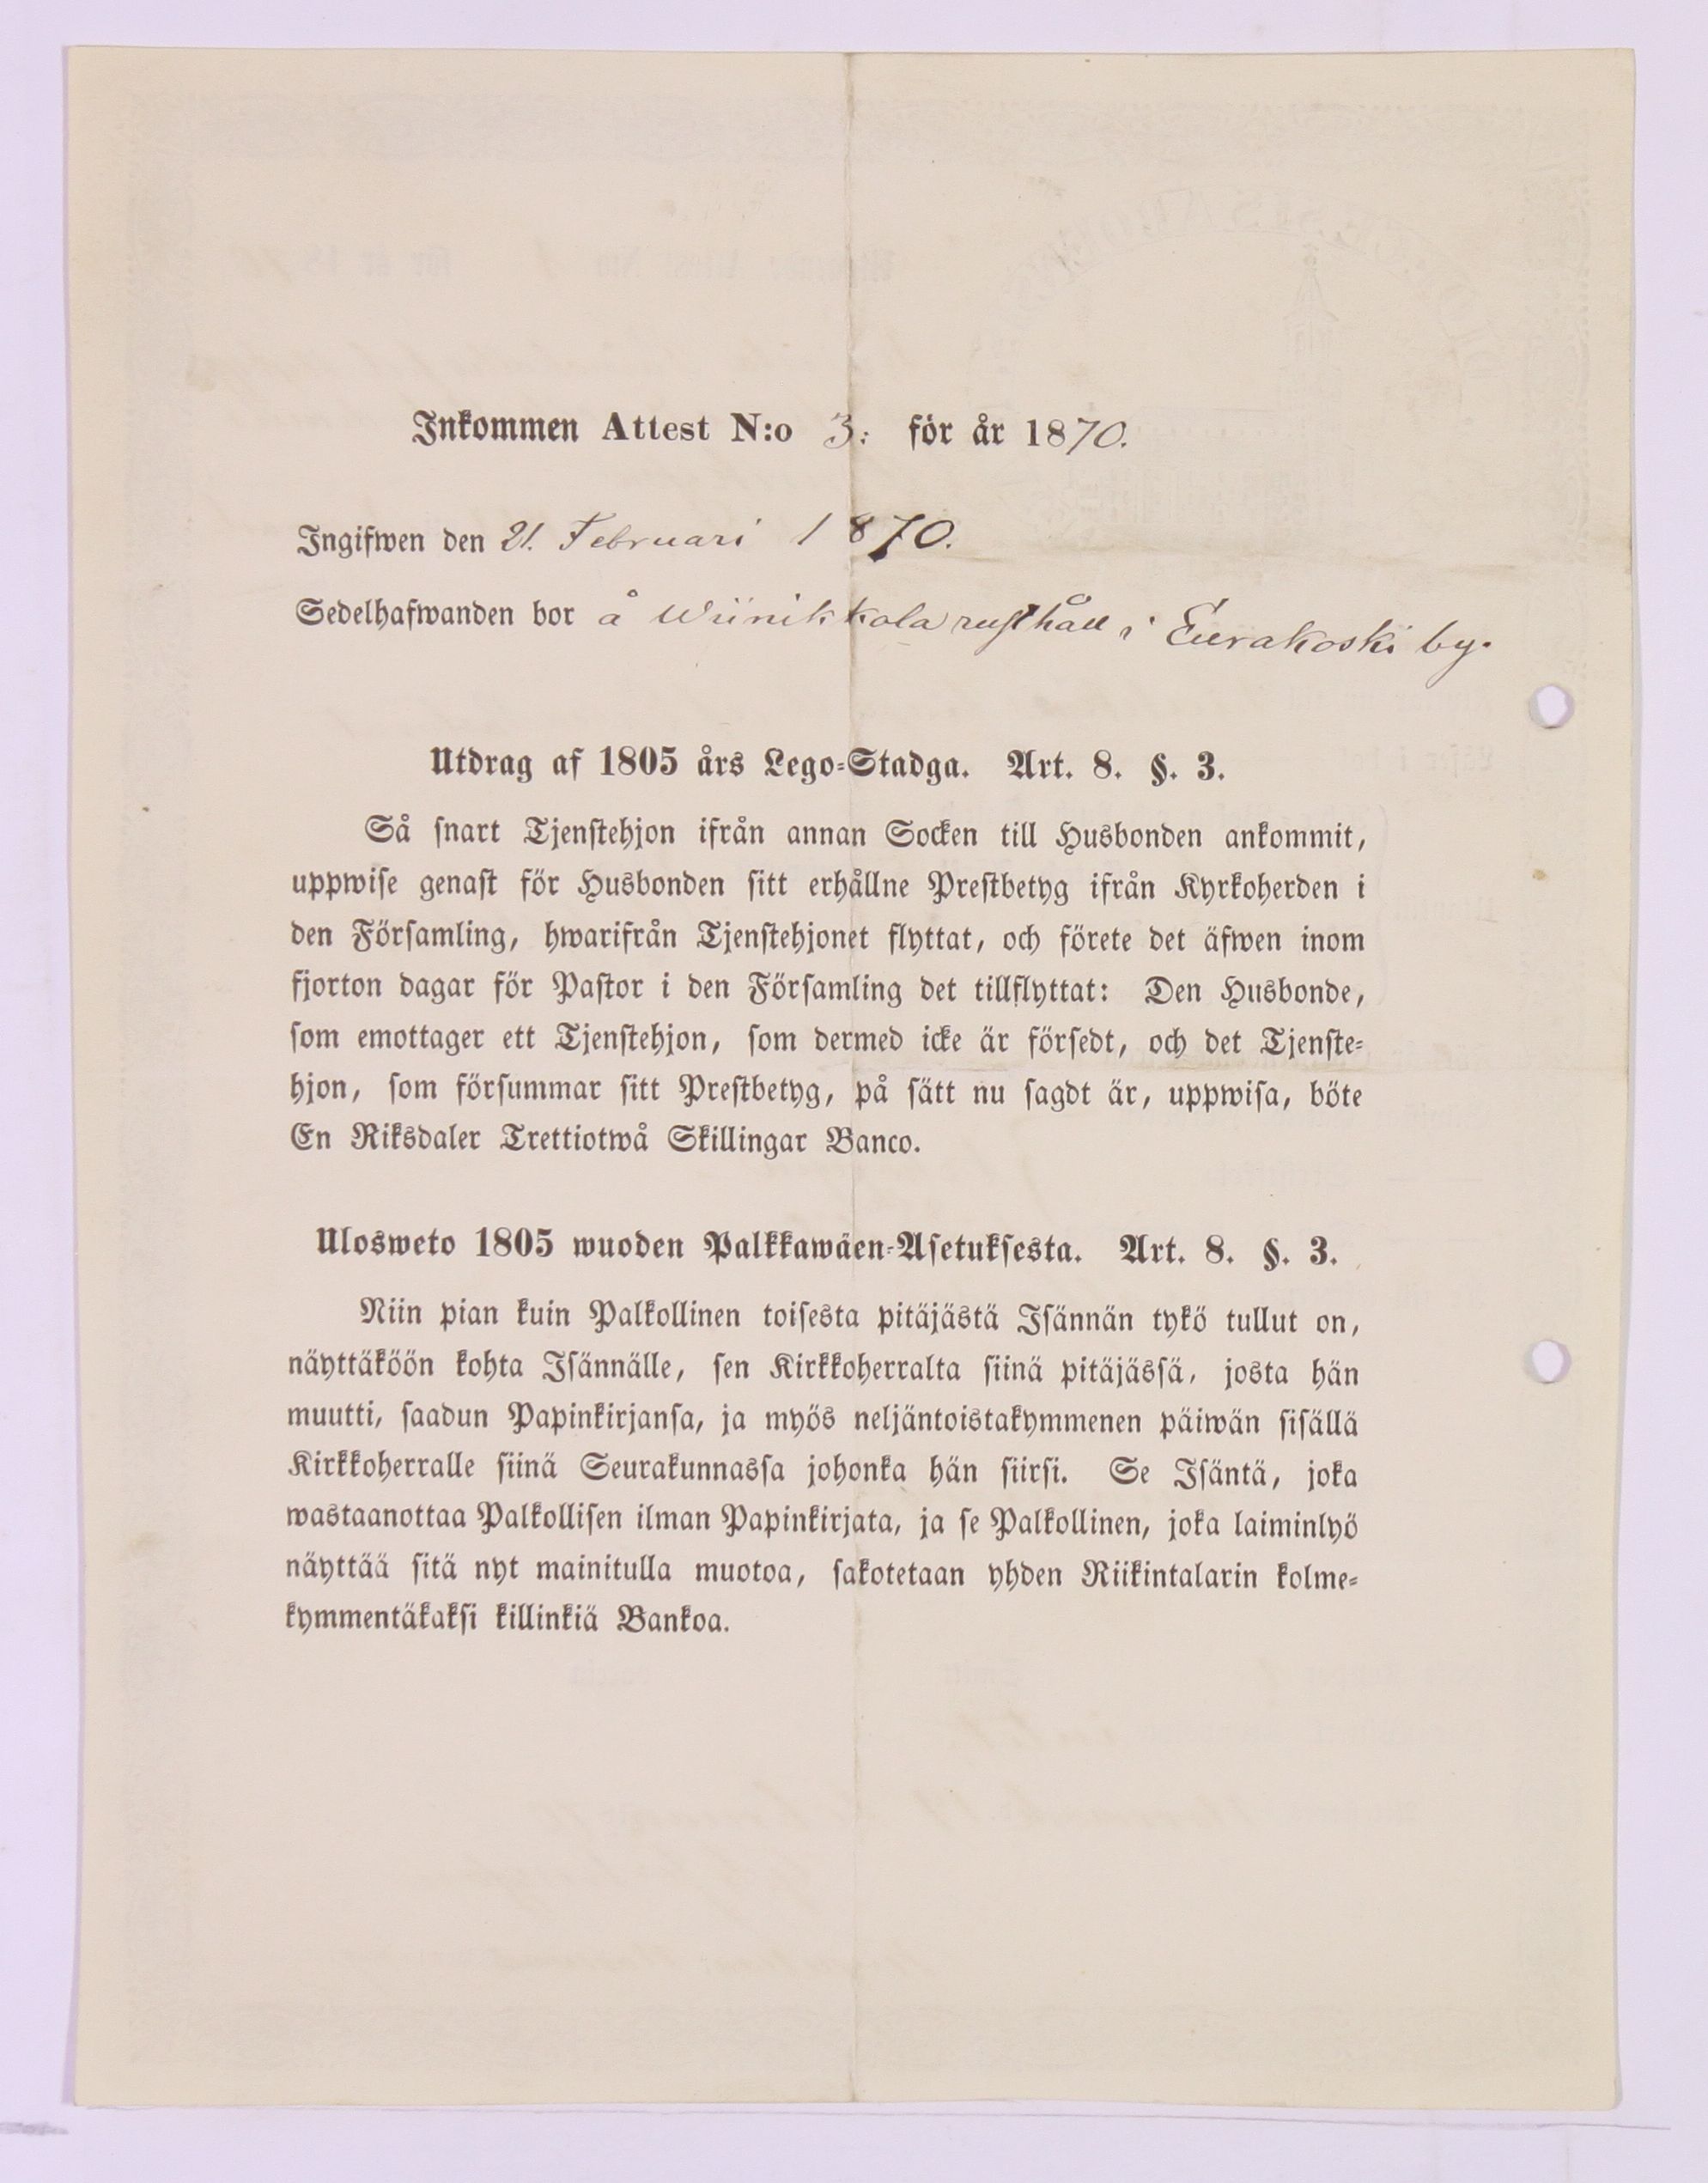 Inkommen Attest N:o 3: för år 1870.
Ingifwen den 21. Februari 1870.
Sedelhafwanden bor å Wiinikkala rusthåll i Eurakoski by.
Utdrag af 1805 års Lego-Stadga. Art. 8. §. 3.
Så snart Tjenstehjon ifrån annan Socken till Husbonden ankommit,
uppwise genast för Husbonden sitt erhållne Prestbetyg ifrån Kyrkoherden i
den Församling, hwarifrån Tjenstehjonet flyttat, och förete det äfwen inom
fjorton dagar för Pastor i den Församling det tillflyttat: Den Husbonde,
som emottager ett Tjenstehjon, som dermed icke är försedt, och det Tjenste-
hjon, som försummar sitt Prestbetyg, på sätt nu sagdt är, uppwisa, böte
En Riksdaler Trettiotwå Skillingar Banco.
Ulosweto 1805 wuoden Palkkawäen-Asetuksesta. Art. 8. §. 3.
Niin pian kuin Palkollinen toisesta pitäjästä Isännän tykö tullut on,
näyttäköön kohta Isännälle, sen Kirkkoherralta siinä pitäjässä, josta hän
muutti, saadun Papinkirjansa, ja myös neljäntoistakymmenen päiwän sisällä
Kirkkoherralle siinä Seurakunnassa johonka hän siirsi. Se Isäntä, joka
wastaanottaa Palkollisen ilman Papinkirjata, ja se Palkollinen, joka laiminlyö
näyttää sitä nyt mainitulla muotoa, sakotetaan yhden Riikintalarin kolme-
kymmentäkaksi killinkiä Bankoa.